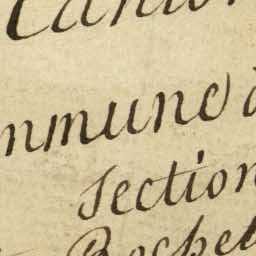 Canton
mmune d
Section
Rochel